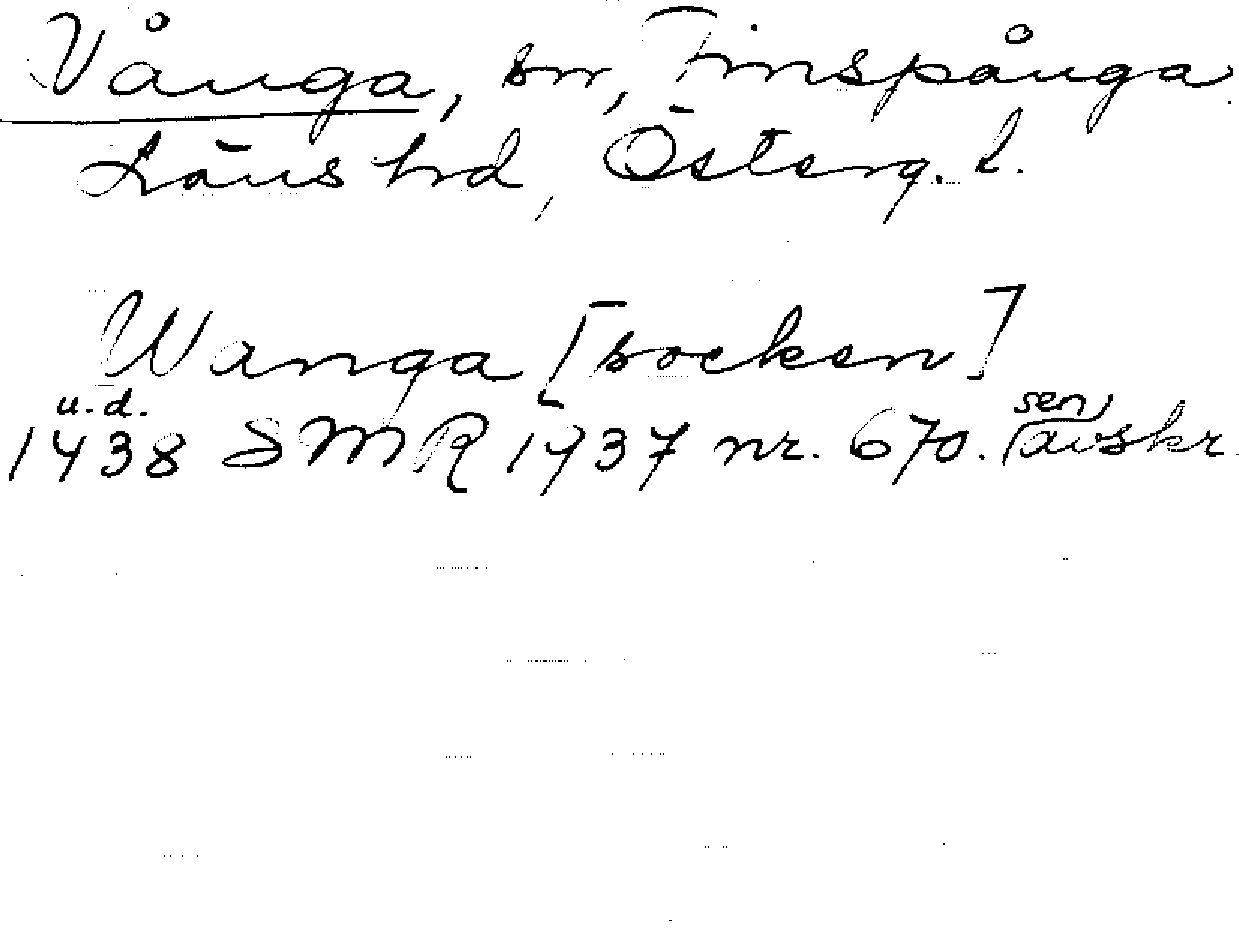 Vånga, sn, Finspånga
Läns hd, Österg. l.
Wanga [socken]
u. d. sen
1438 SMR 1437 nr. 670. (avskr.